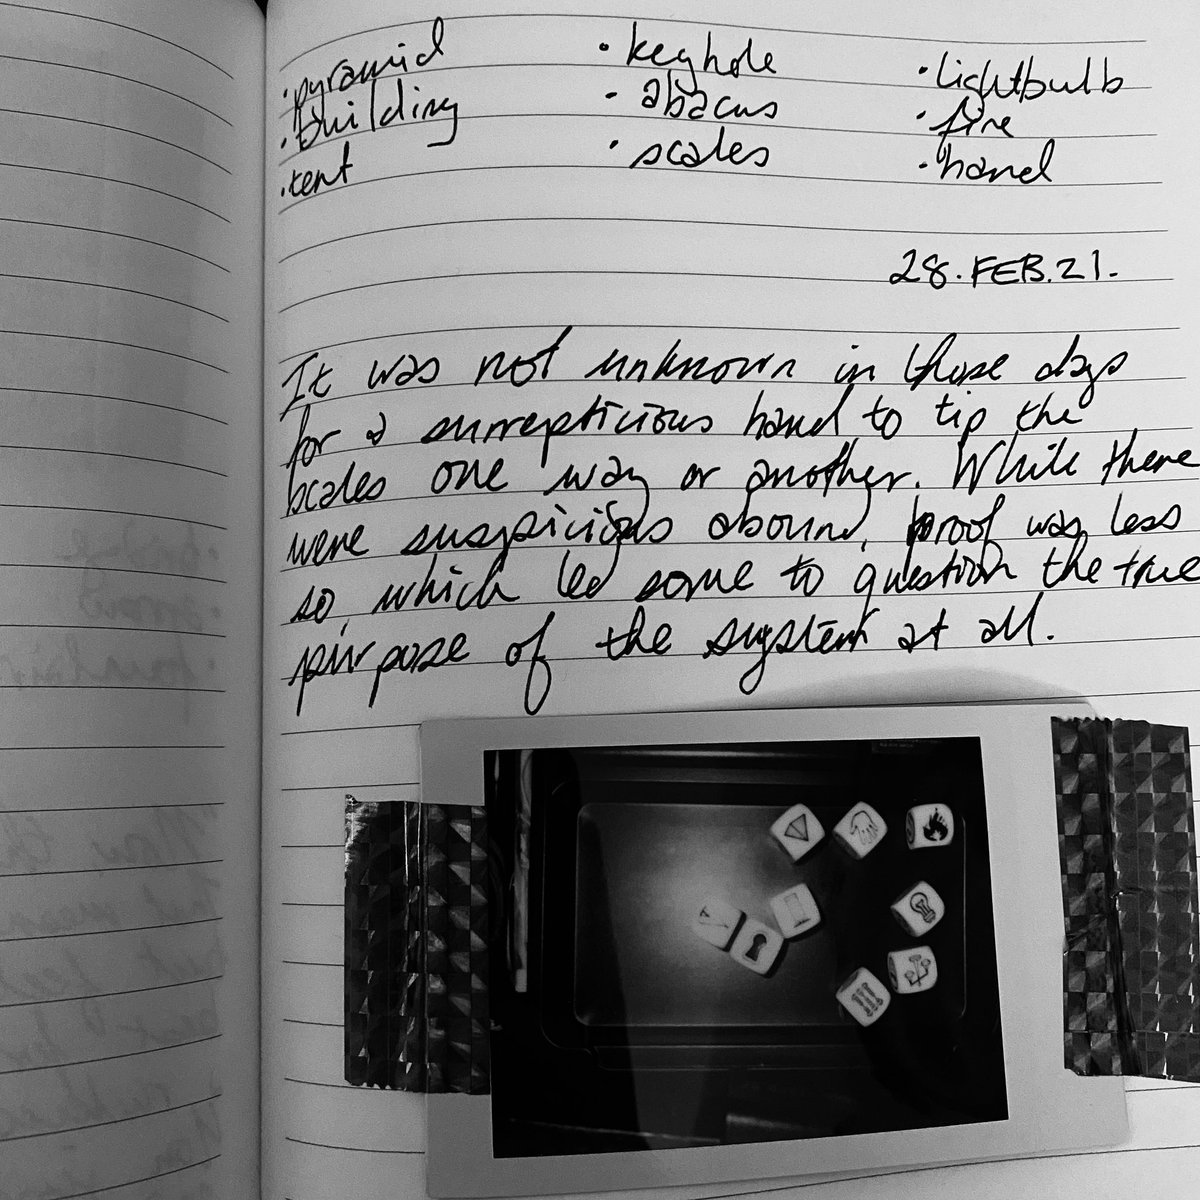 ·pyramid ·keyhole ·lightbulb
·building ·abacus ·fire
·tent ·scales ·hand
28.FEB.21.
It was not unknown in those days
for a surrepticious hand to tip the
scales one way or another. While there
were suspicions abound, proof was less
so, which led some to question the true
purpose of the system at all.